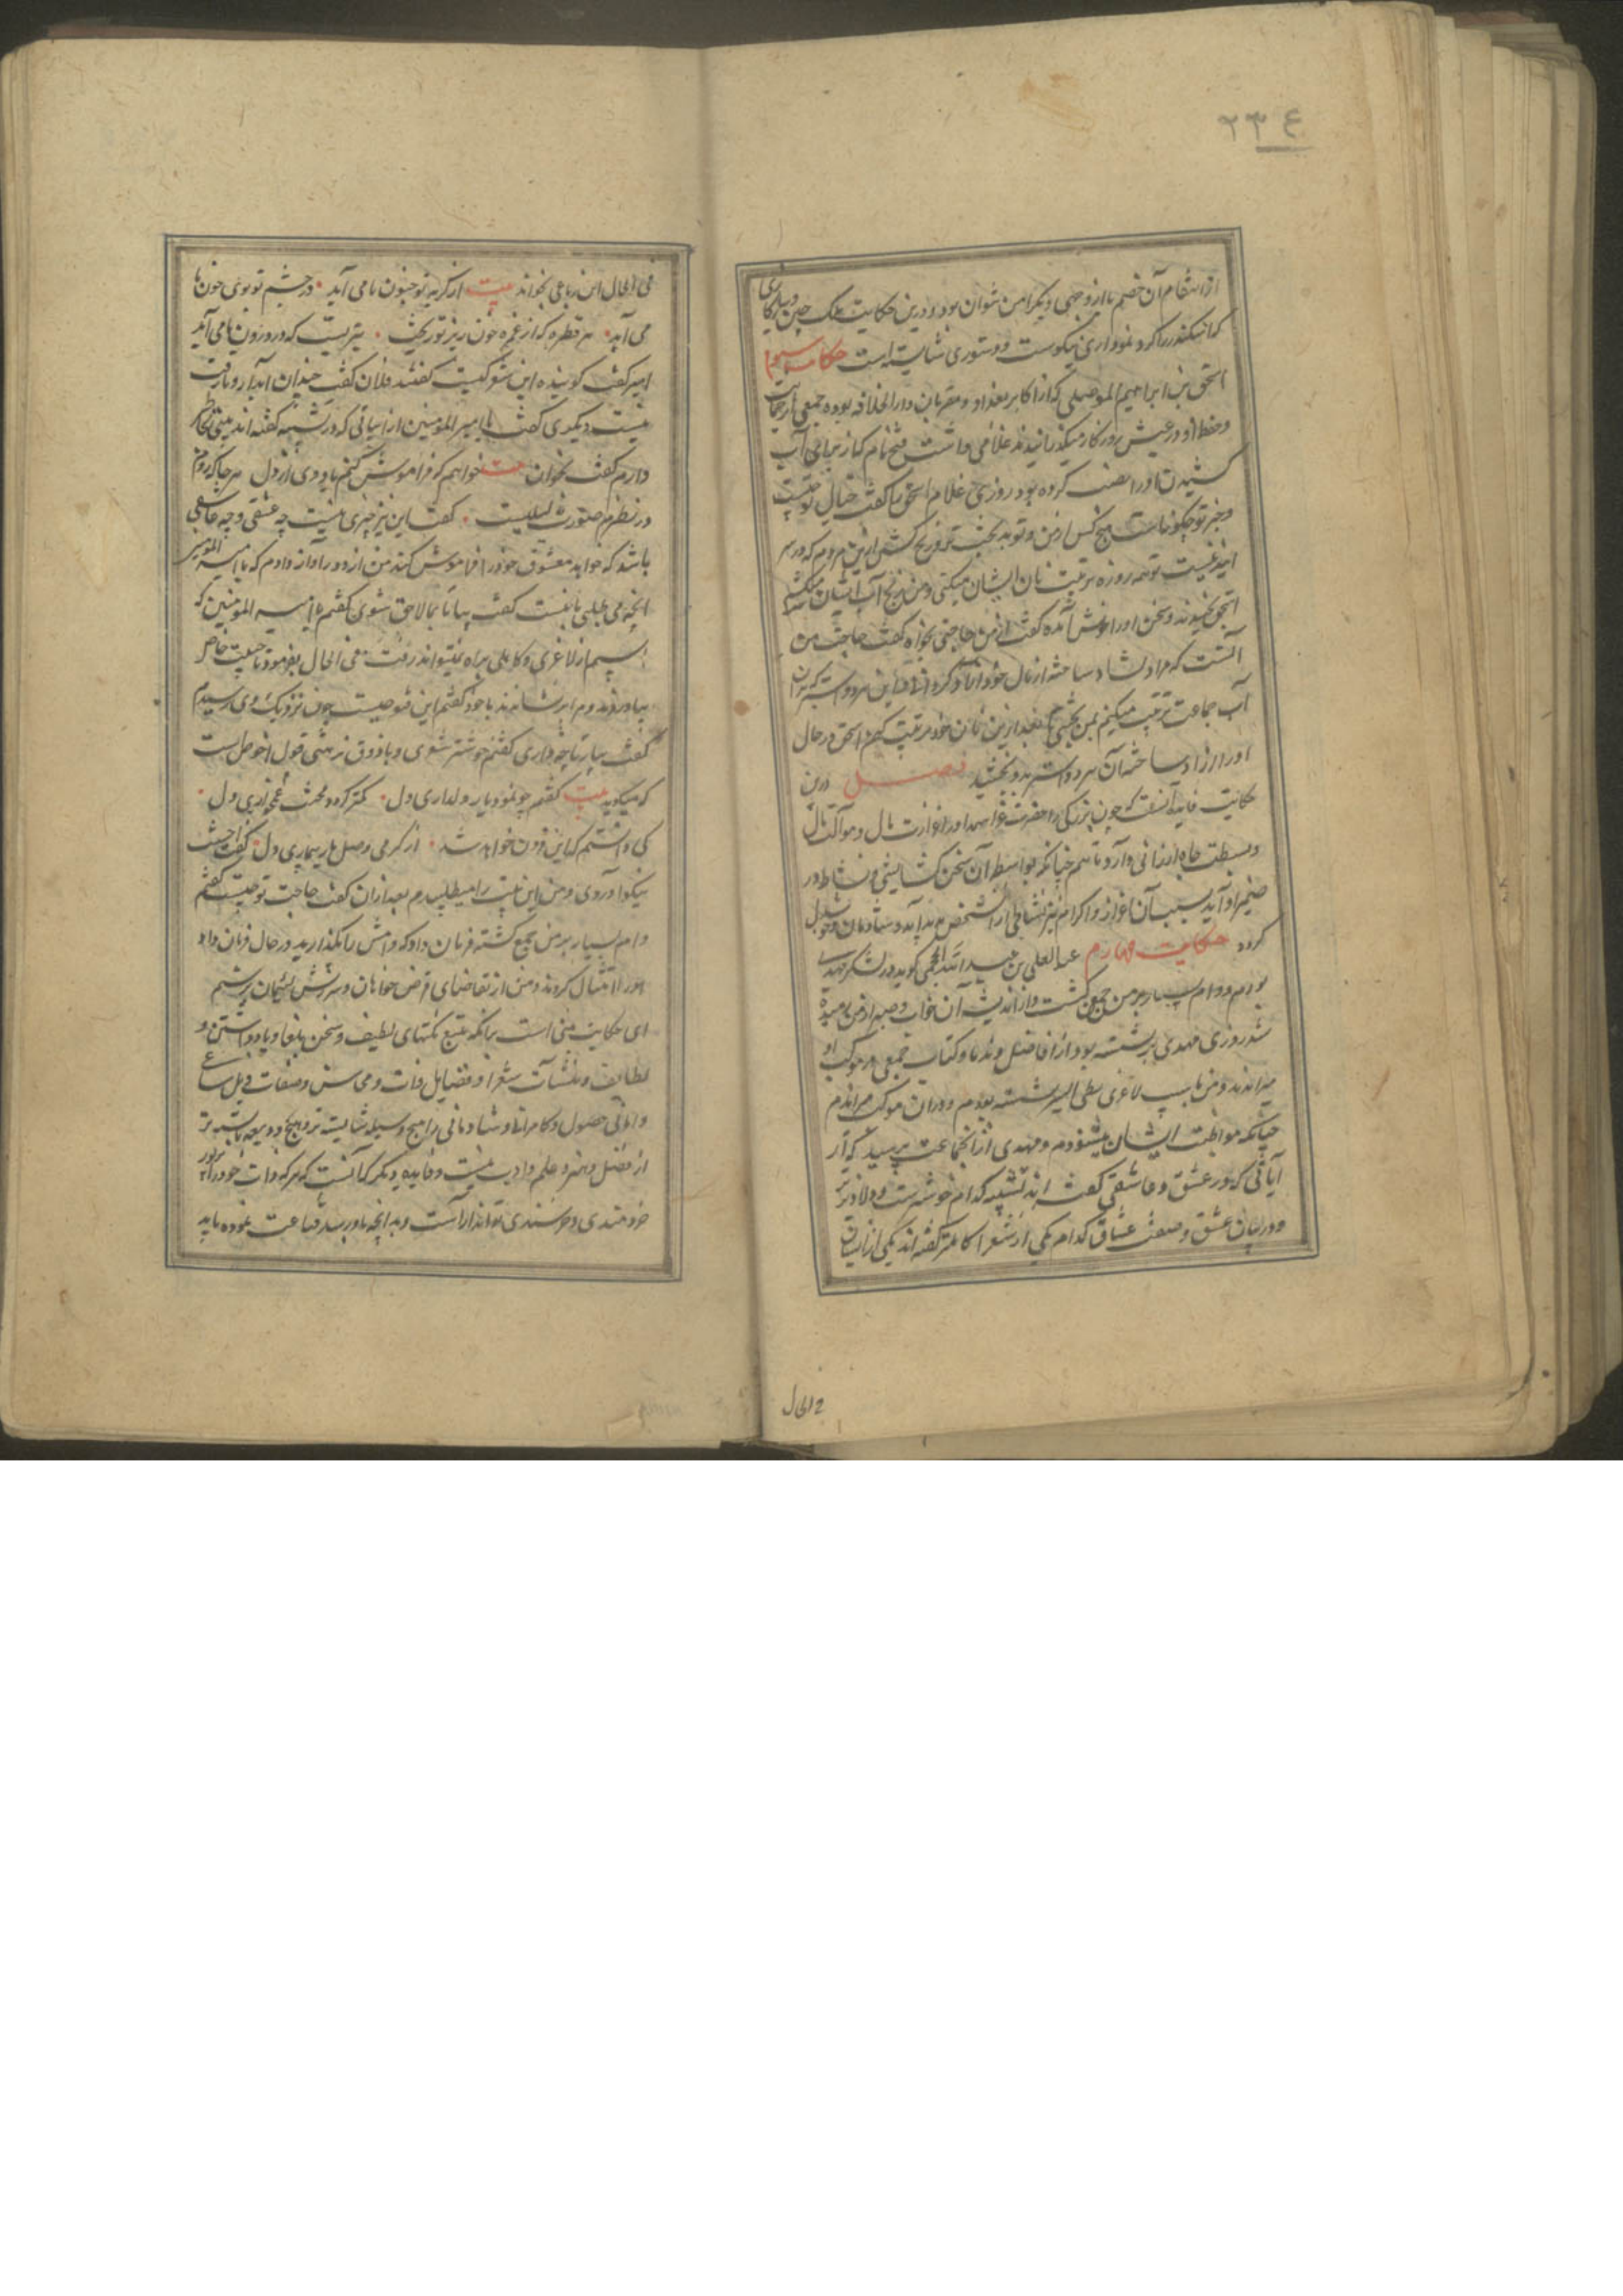 ٢٣٤
از انتقام آن خصم یا از وجهی دیگر امن نتوان بود و درین حکایت ملک چین و
که اسکندر را کرد نموداری نیکوست و دستوری شایسته است حکایت سیوم
اسحق بن ابراهیم الموصلی که از اکابر بغداد و مقربان دار الخلافه بوده جمعی
و حفظ او در عیش روزگار میگذرانیدند غلامی داشت فتح نام که از برای آب
کشیدن او را نصب کرده بود روزی غلام اسحق را گفت حال تو چیست
و خبر تو چگونه است هیچ کس از من و تو بدبخت تر و رنج کش تر ازین مردم که در سر
اند نیست تو همه روزه ترتیب نان ایشان میکنی و من رنج آب ایشان میکشم
اسحق بخندید و سخن او را خوش آمده گفت از من حاجتی بخواه گفت حاجت من
آنست که مرا دلشاد ساخته از مال خود آزاد گردانی و این سر دو استر که بدان
آب جماعت ترتیب میکنم بمن بخشی تا بعد ازین نان خود مرتب کنم اسحق در حال
او را آزاد ساخته آن سر دو استر بدو بخشید فصل درین
حکایت فایده آنست که چون بزرگی را حضرت عز اسمه او را غزارت مال و موآلت
و بسطت جاه ارزانی دارد تا هم چنانکه بواسطه آن سخن گشایشی و نشاط در
ضمیر او آید بسبب آن اعزاز و اکرام نیز نشاطی از آن شخص پدید آید و شادمان و خوشدل
گردد حکایت چهارم عبد العلی بن عبید الله الجمحی گوید در لشکر مهدی
بودم و وام بسیار بر من جمع گشت و از اندیشه آن خواب و صبر از من رمیده
شد روزی مهدی بر نشسته بود از افاضل و ندما و کتاب جمعی در موکب او
میراندند و من با اسپ لاغری بطی السیر نشسته بودم و در آن موکب میراندم
چنانکه مواظبت ایشان میشنودم و مهدی از آن جماعت پرسید که از
آیاتی که در عشق و عاشقی گفته اند تشبیه کدام خوشترست و دلاویزتر
و در بیان عشق و صفت عشاق کدام یکی از شعرا کاملتر گفته اند یکی از ایشان
فی الحال
فی الحال این رباعی بخواند بیت از گریه تو جنون ما می آید در چشم تو بوی خون ما
می آید هر قطره که از غمزه خون ریز تو ریخت تیریست که در درون ما می آید
امیر گفت گوینده این شعر کیست گفتند فلان گفت چندان آبدار و با رقت
نیست دیگری گفت یا امیر المؤمنین از ابیاتی که در تشبیه گفته اند بیتی بخاطر
دارم گفت بخوان بیت خواهم که فراموش کنم یاد وی از دل هر جا که روم
در نظرم صورت لیلیست گفت این نیز چیزی نیست چه عشقی و چه عاشقی
باشد که خواهد معشوق خود را فراموش کند من از دور آواز دادم که یا امیر المؤمنین
آنچه می طلبی با منست گفت بیا تا بما لاحق شوی گفتم یا امیر المؤمنین که
اسپم از لاغری و کاهلی براه نمیتواند رفت فی الحال بفرمود تا جنیبت خاص
بیاوردند و مرا بر نشاندند با خود گفتم این فتوحیست چون نزدیک وی رسیدم
گفت بیار تا چه داری گفتم خوشتر شعری و با ذوق تر بیتی قول احوص است
که میگوید بیت گفتم چو نمود یار دلداری دل کمتر گردد محنت غمخواری دل
کی دانستم که این فزون خواهد شد از گرمی وصل یار بیماری دل گفت احسنت
نیکو آوردی و من این بیت را میطلبیدم بعد از آن گفت حاجت تو چیست گفتم
وام بسیار بر من جمع گشته فرمان داد که وامش را بگذارید در حال فرمان داد
او را امتثال کردند و من از تقاضای قرض خواهان و سرزنش لئیمان برستم
ای حکایت مبنی است برانکه تتبع نکتهای لطیف و سخن بلغا و یاد داشتن و
لطایف و منشآت شعرا و فضایل ذات و محاسن و صفات
و امانی حصول و کامرانی و شادمانی را هیچ وسیله شایسته تر و هیچ ذریعه بایسته تر
از فضل و هنر و علم و ادب نیست و فایده دیگر که آنست که هر که ذات خود را بزیور
خردمندی و خرسندی تواند آراست و به آنچه باو رسد قناعت نموده باید